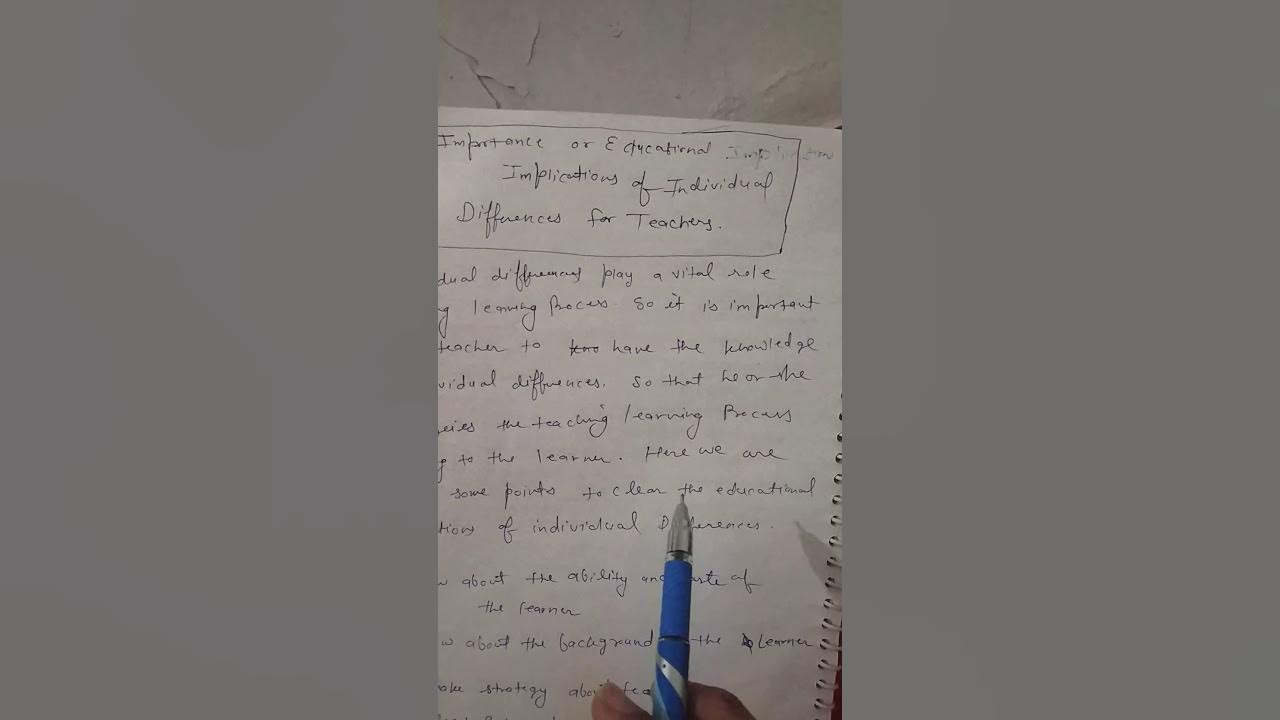 Importance or Educational
Implications of Individual
Differences for Teachers.
dual differences play a vital role
g learning Process so it is important
teacher to have the knowledge
vidual differences. so that he or she
the teaching learning Process
g to the learner. Here we are
some points to clear the educational
tions of individual
w about the ability
the learner
w about the background the Learner
ake strategy about tea